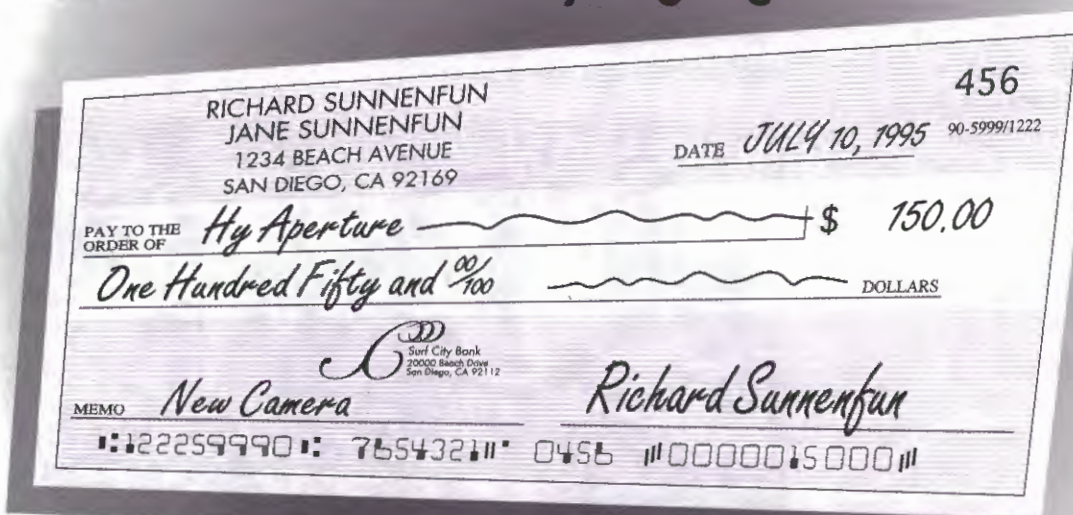 456
RICHARD SUNNENFUN
JANE SUNNENFUN
1234 BEACH AVENUE
SAN DIEGO, CA 92169
DATE JULY 10, 1995 90-5999/1222
PAY TO THE ORDER OF Hy Aperture $ 150.00
One Hundred Fifty and 00/100 DOLLARS
Surf City Bank
20000 Beach Drive
San Diego, CA 92112
MEMO New Camera Richard Sunnenfun
⑆122259990⑆ 7654321⑈ 0456 ⑈0000015000⑈